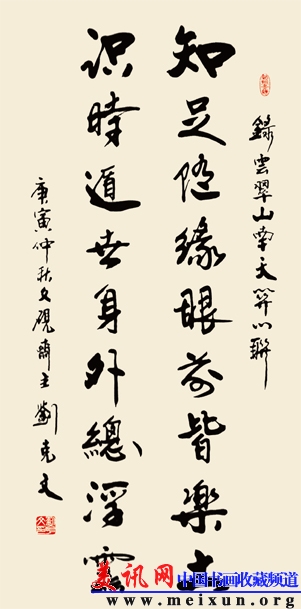 錄雲翠山南天門聯
知足隨緣眼前皆樂土
识時遁世身外總浮雲
庚寅仲秋文硯齋主劉克文
美讯网 中国书画收藏频道
www.meixun.org/